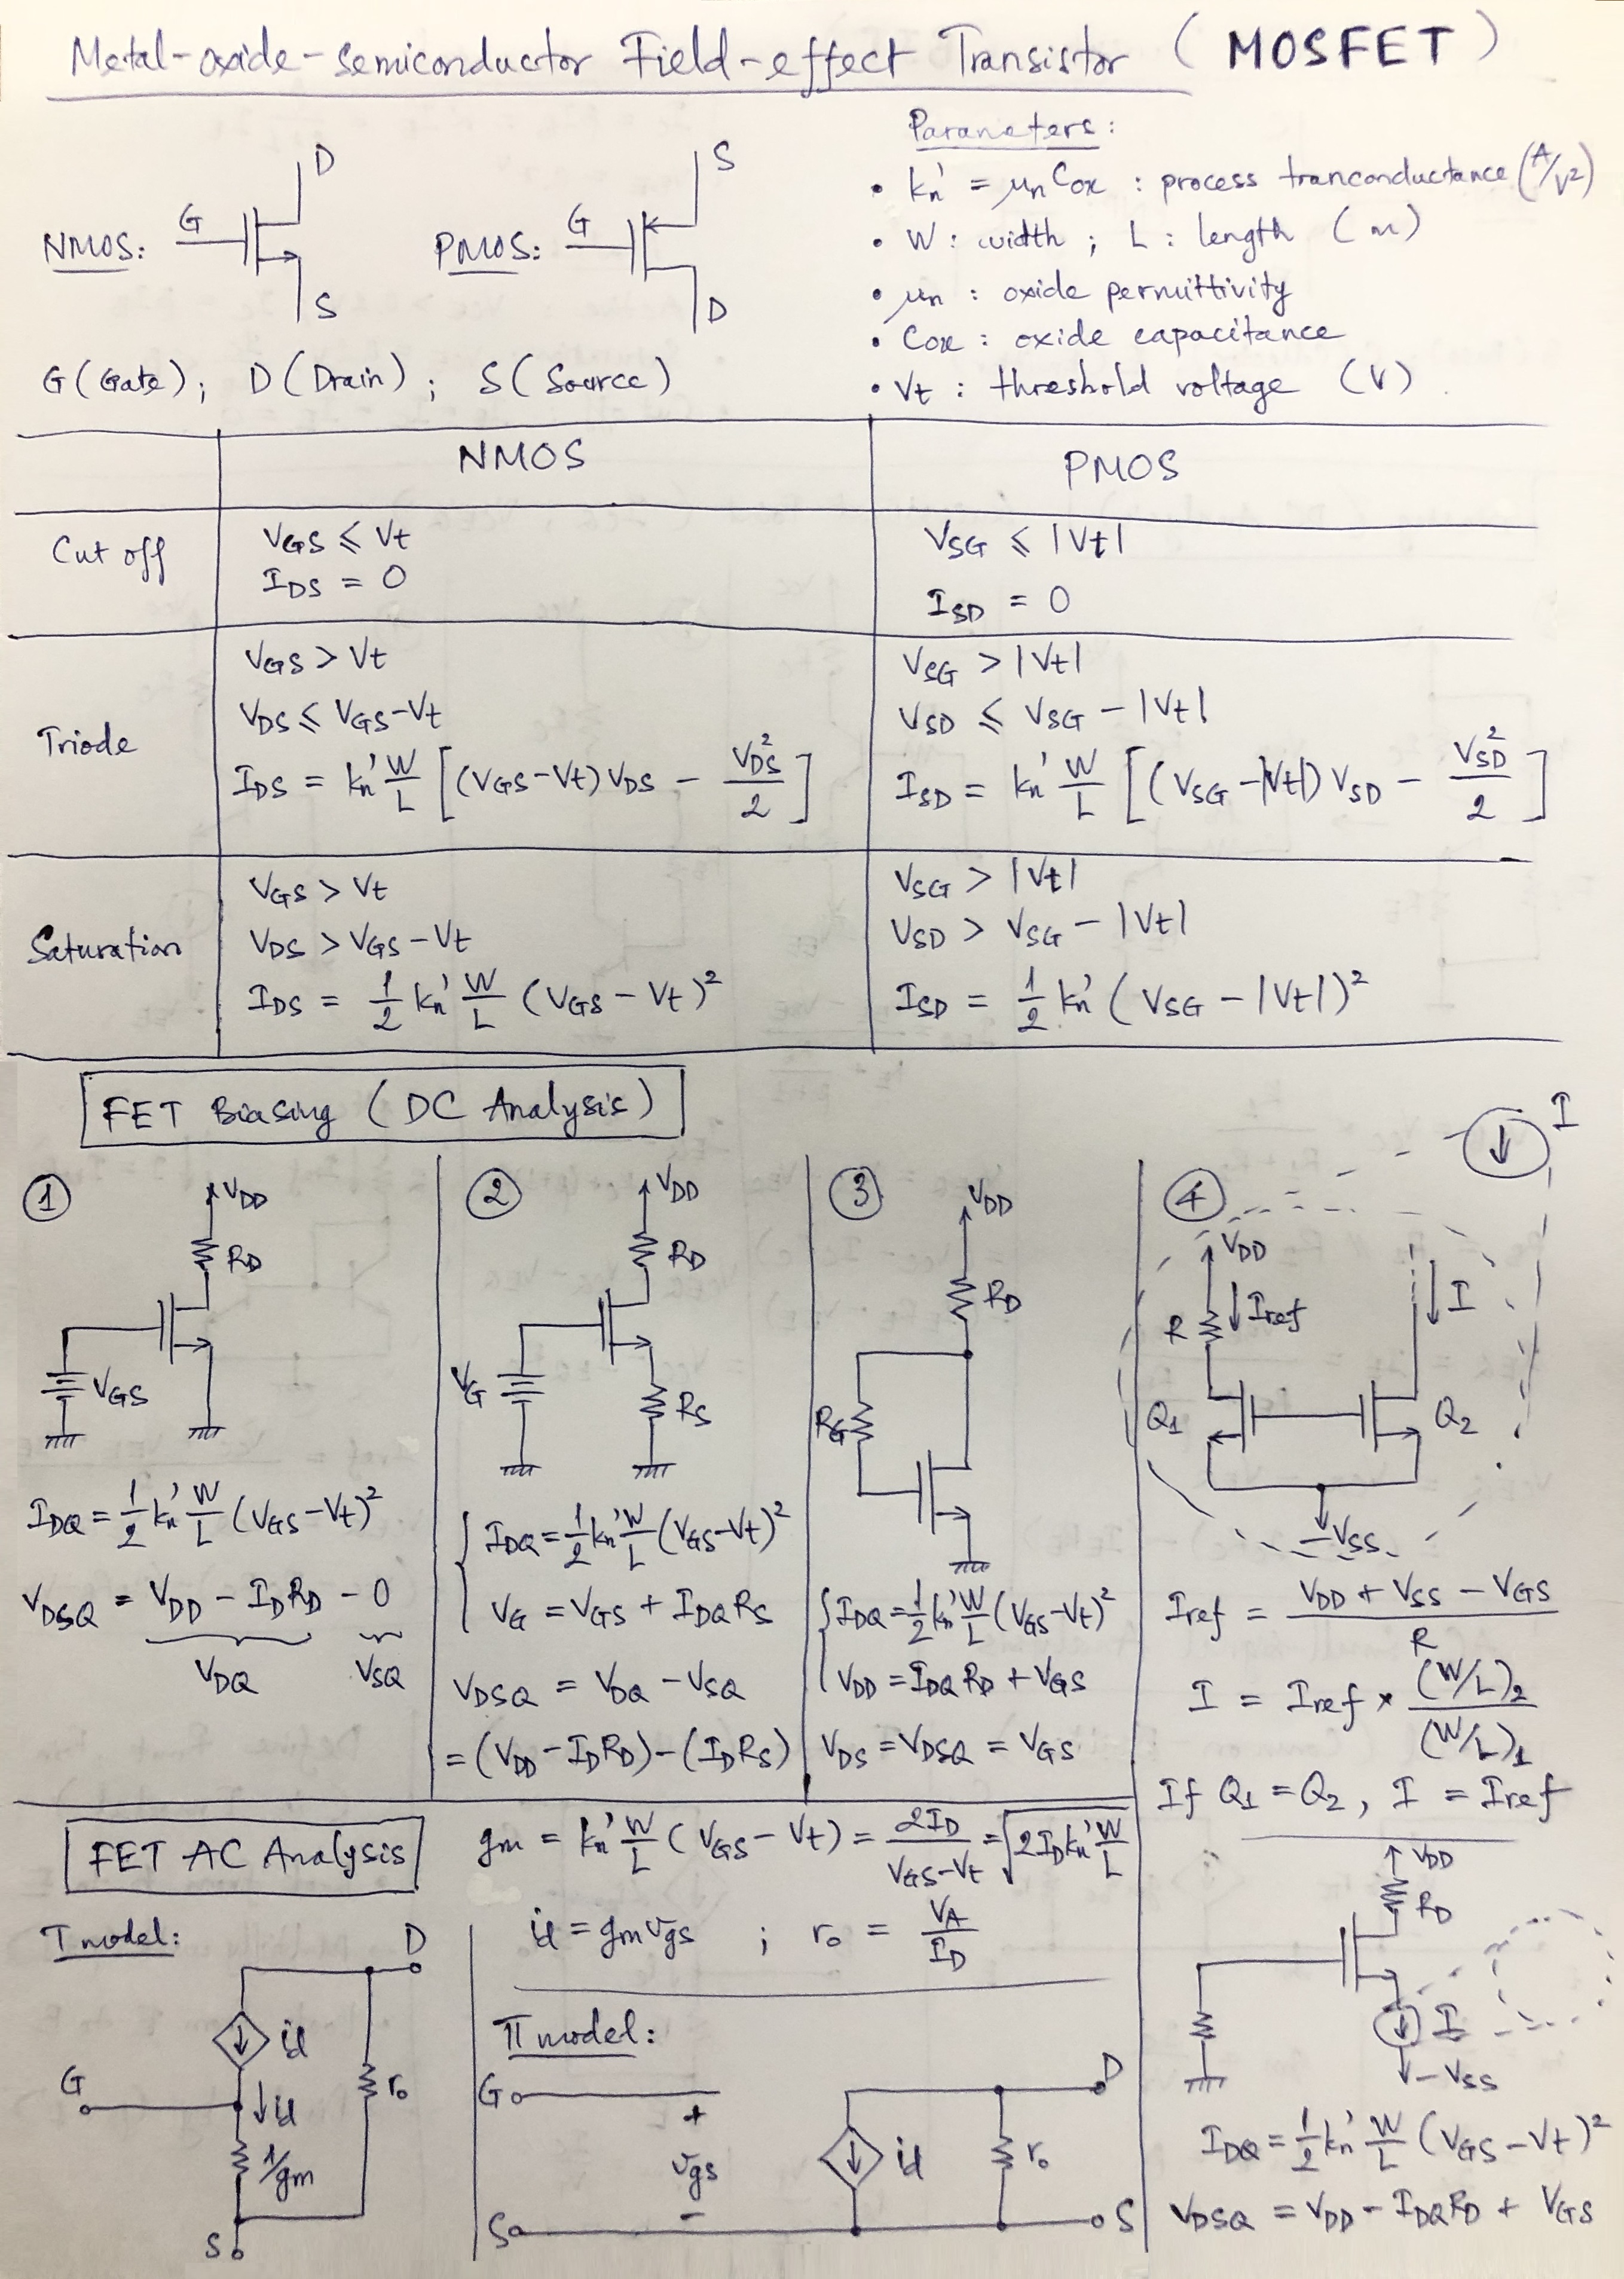 Metal-oxide-semiconductor Field-effect Transistor (MOSFET)
NMOS: G D S
PMOS: G S D
G (Gate); D (Drain); S (Source)
Parameters:
• kn' = μn Cox : process tranconductance (A/V²)
• W : width ; L : length (m)
• μn : oxide permittivity
• Cox : oxide capacitance
• Vt : threshold voltage (V)
NMOS PMOS
Cut off
VGS ≤ Vt
IDS = 0
VSG ≤ |Vt|
ISD = 0
Triode
VGS > Vt
VDS ≤ VGS - Vt
IDS = kn' W/L [(VGS - Vt) VDS - VDS²/2]
VSG > |Vt|
VSD ≤ VSG - |Vt|
ISD = kn' W/L [(VSG - |Vt|) VSD - VSD²/2]
Saturation
VGS > Vt
VDS > VGS - Vt
IDS = 1/2 kn' W/L (VGS - Vt)²
VSG > |Vt|
VSD > VSG - |Vt|
ISD = 1/2 kn' (VSG - |Vt|)²
FET Biasing (DC Analysis)
① VDD
RD
VGS
IDQ = 1/2 kn' W/L (VGS - Vt)²
VDSQ = VDD - IDRD - 0
VDQ VSQ
② VDD
RD
VG
RS
IDQ = 1/2 kn' W/L (VGS - Vt)²
VG = VGS + IDQ RS
VDSQ = VDQ - VSQ
= (VDD - IDRD) - (IDRS)
③ VDD
RD
RG
IDQ = 1/2 kn' W/L (VGS - Vt)²
VDD = IDQ RD + VGS
VDS = VDSQ = VGS
④ I
VDD
R Iref I
Q1 Q2
-VSS
Iref = (VDD + VSS - VGS)/R
I = Iref × (W/L)2/(W/L)1
If Q1 = Q2, I = Iref
VDD
RD
I
-VSS
IDQ = 1/2 kn' W/L (VGS - Vt)²
VDSQ = VDD - IDQRD + VGS
FET AC Analysis
gm = kn' W/L (VGS - Vt) = 2ID/(VGS - Vt) = √(2ID kn' W/L)
id = gm vgs ; ro = VA/ID
T model:
D
id
G
id
ro
1/gm
S
Π model:
G D
+
vgs id ro
-
S S